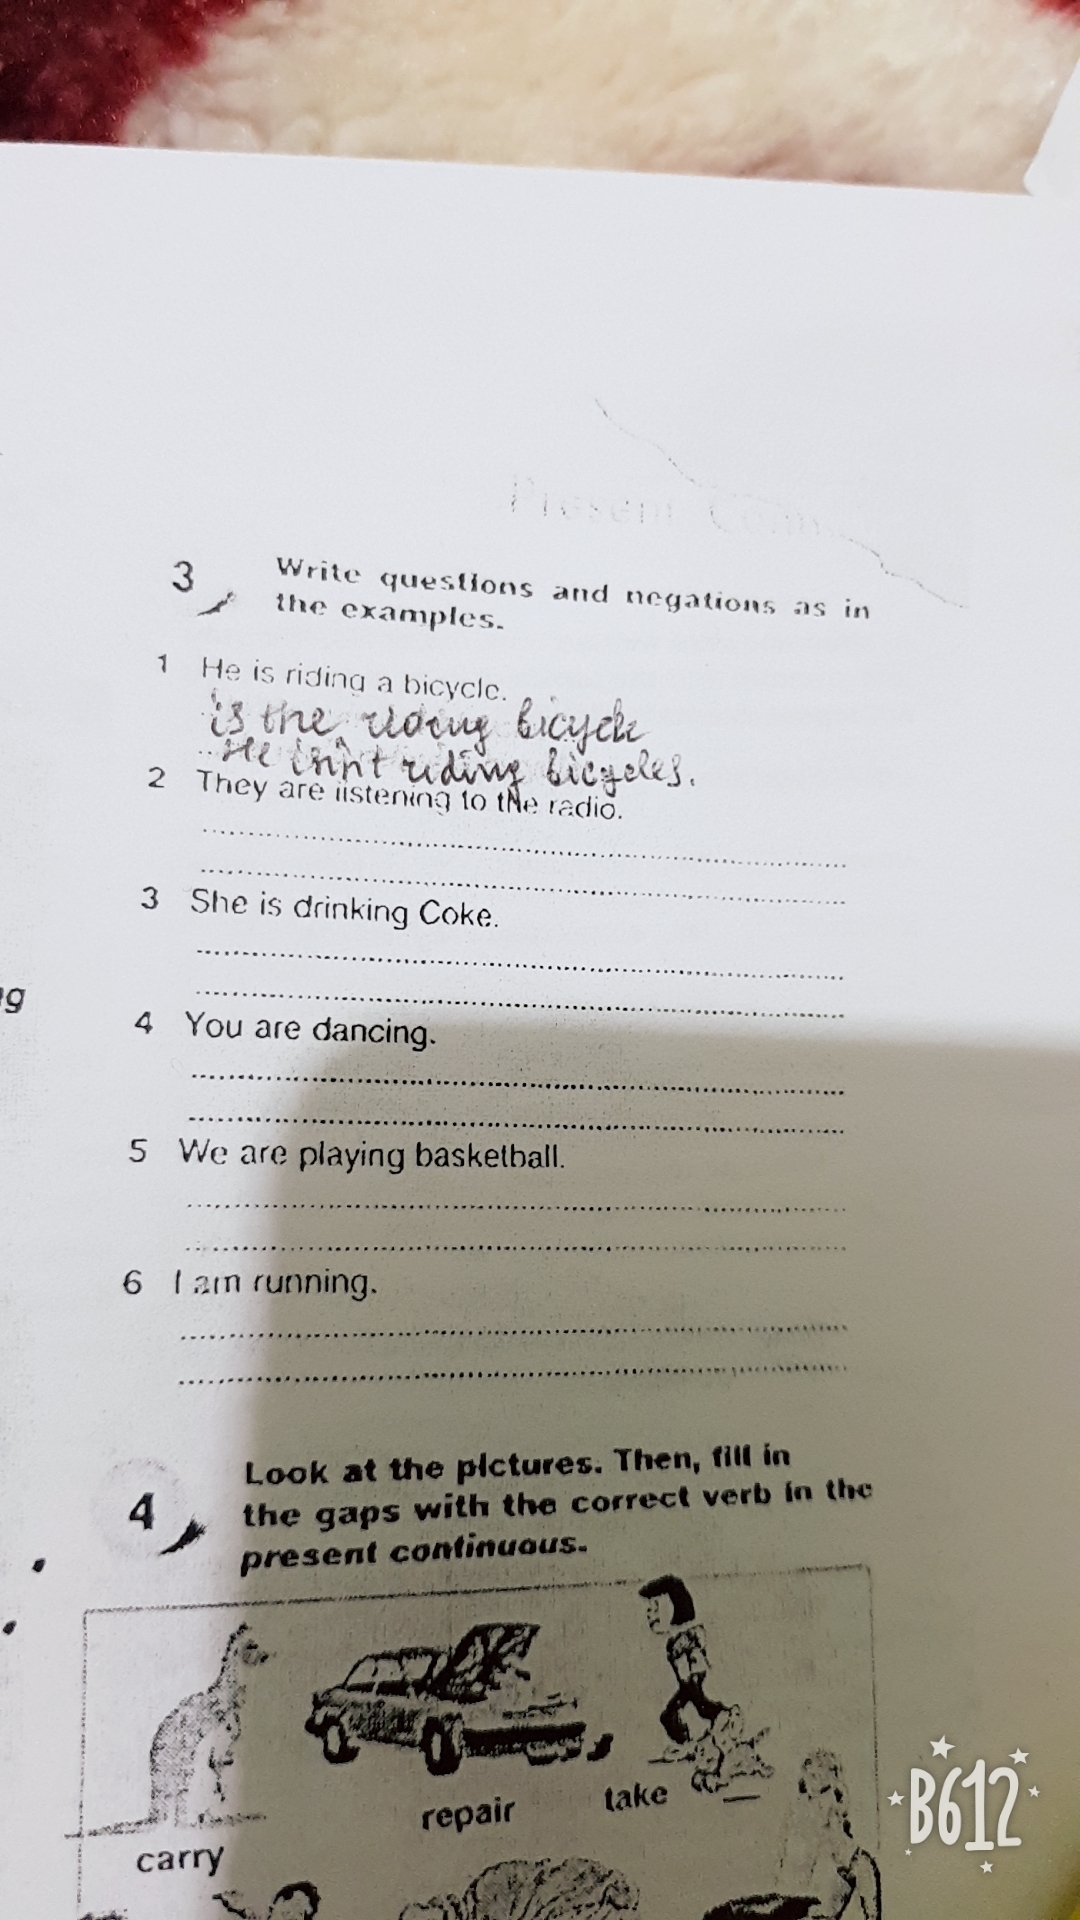 Present
3 Write questions and negations as in
the examples.
1 He is riding a bicycle.
is the riding bicycle
He isn't riding bicycles.
2 They are listening to the radio.
3 She is drinking Coke.
4 You are dancing.
5 We are playing basketball.
6 I am running.
4 Look at the pictures. Then, fill in
the gaps with the correct verb in the
present continuous.
carry
repair
take
B612